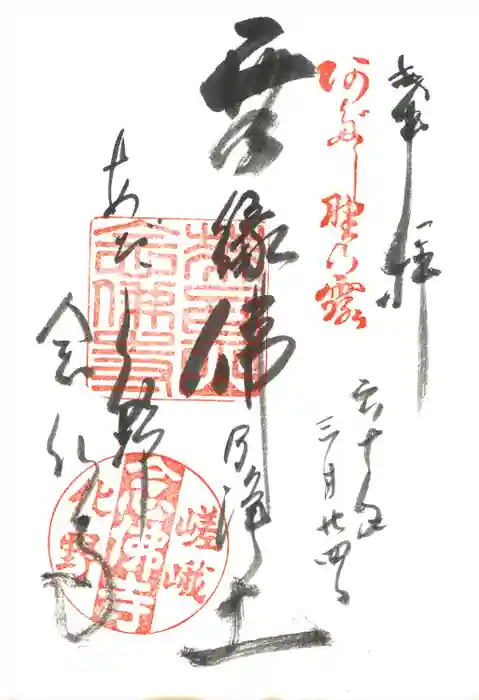 奉拝
六十年
三月廿四日
阿だし野の露
無縁佛
乃浄土
あだし野
念仏寺
念佛寺
嵯峨
化野